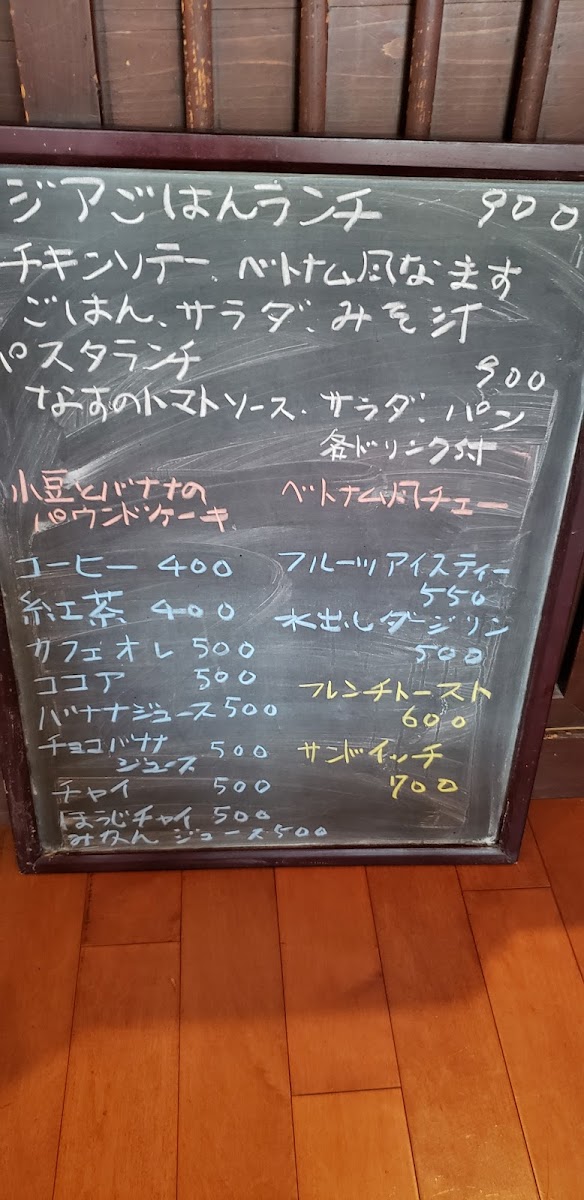 ジアごはんランチ 900
チキンソテー、ベトナム風なます
ごはん、サラダ、みそ汁
パスタランチ 900
なすのトマトソース、サラダ、パン
各ドリンク付
小豆とバナナの
パウンドケーキ
ベトナム風チェー
コーヒー 400
紅茶 400
カフェオレ 500
ココア 500
バナナジュース 500
チョコバナナ
ジュース 500
チャイ 500
ほうじチャイ 500
みかんジュース 500
フルーツアイスティー
550
水出しダージリン
500
フレンチトースト
600
サンドイッチ
700